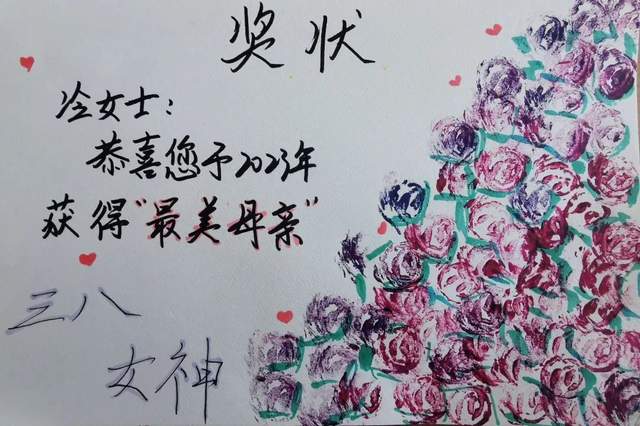 奖状
冷女士：
恭喜您予2023年
获得“最美母亲”
三八
女神